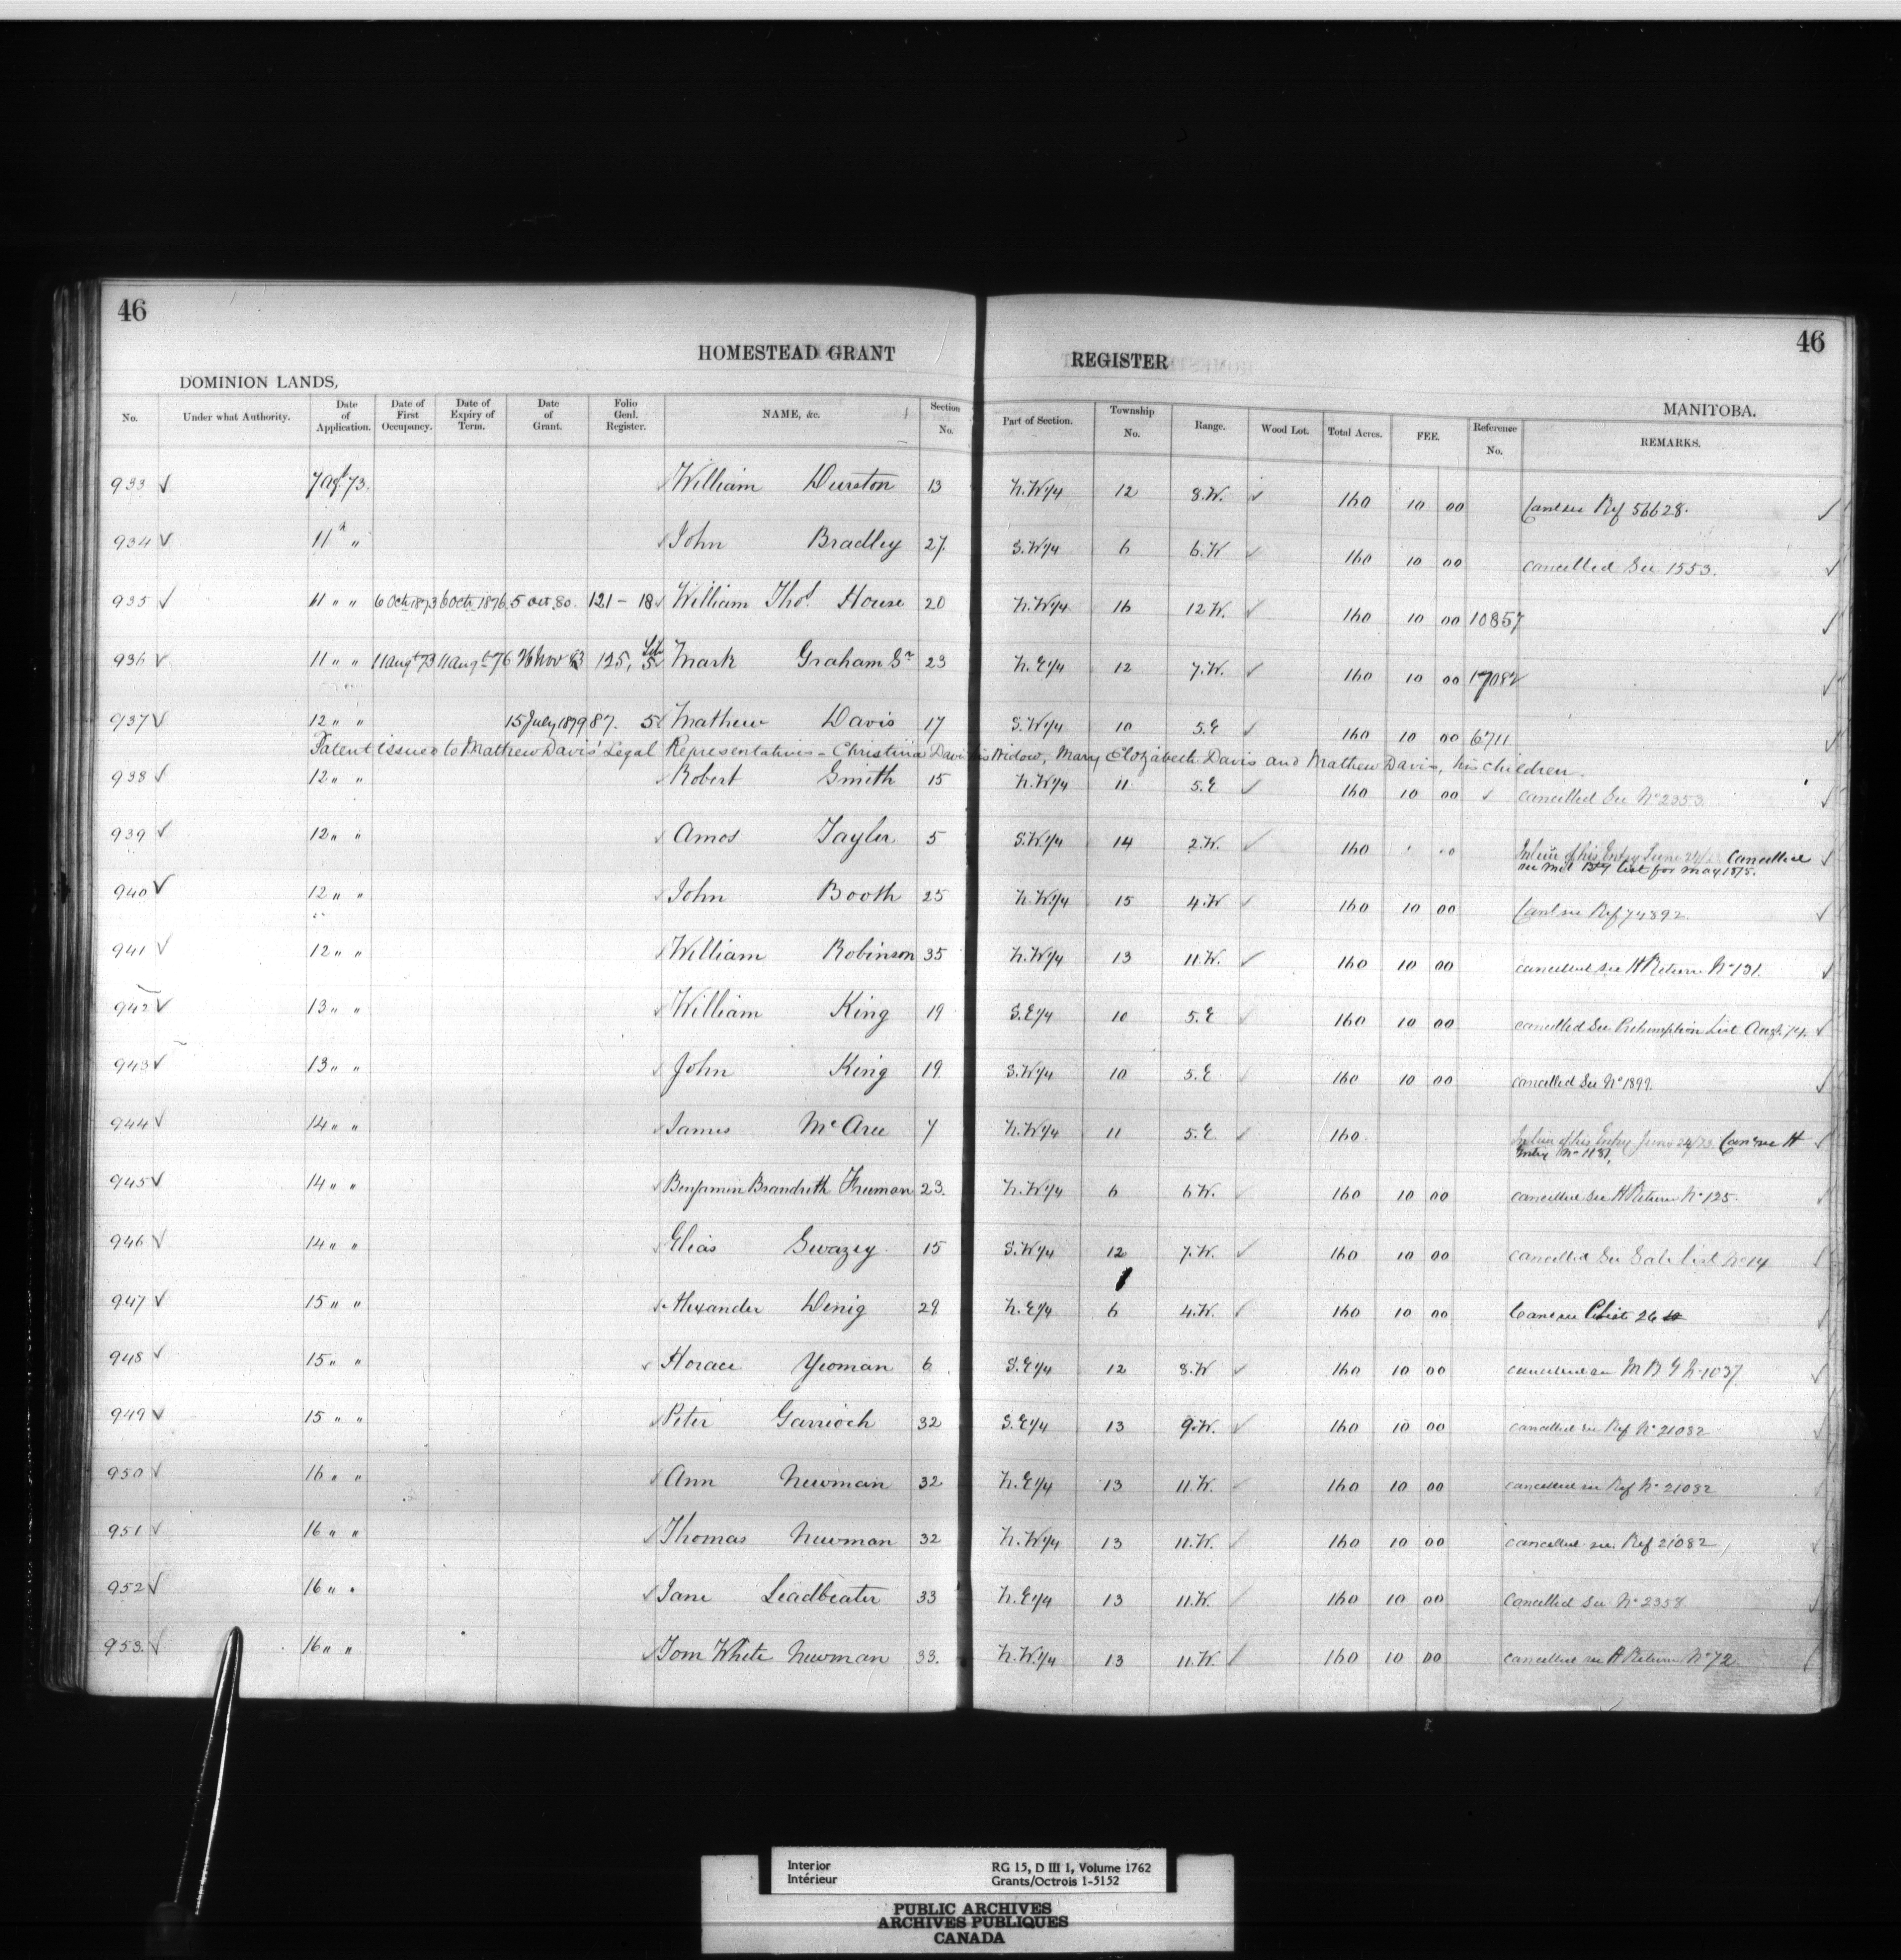 46
46
HOMESTEAD GRANT REGISTER
DOMINION LANDS, MANITOBA.
No. Under what Authority. Date of Application. Date of First Occupancy. Date of Expiry of Term. Date of Grant. Folio Genl. Register. NAME, &c. Section No. Part of Section. Township No. Range. Wood Lot. Total Acres. FEE. Reference No. REMARKS.
933 ✓ 7 Agt 73. William Durston 13 N.W1/4 12 8.W. ✓ 160 10 00 Canl see Ref 56628. ✓
934 ✓ 11 " " John Bradley 27. S.W1/4 6 6.W ✓ 160 10 00 cancelled See 1553. ✓
935 ✓ 11 " " 6 Oct 1873 6 Oct 1876 5 Oct. 80. 121 - 18 William Thos. House 20 N.W1/4 16 12 W. ✓ 160 10 00 10857 ✓
936 ✓ 11 " " 11 Augt 73 11 Augt 76 26 Nov 83 125, Lib 5 Mark Graham Sr 23 N.E1/4 12 7.W. ✓ 160 10 00 17082 ✓
937 ✓ 12 " " 15 July 1879 87. 5 Mathew Davis 17 S.W1/4 10 5.E ✓ 160 10 00 6711 ✓
Patent issued to Mathew Davis' Legal Representatives - Christina Davis his Widow, Mary Elizabeth Davis and Mathew Davis, his children.
938 ✓ 12 " " Robert Smith 15 N.W1/4 11 5.E ✓ 160 10 00 ✓ cancelled See No 2353 ✓
939 ✓ 12 " " Amos Taylor 5 S.W1/4 14 2.W. ✓ 160 In lieu of his Entry June 24/ Cancelled ✓
see Mil Bty list for May 1875.
940 ✓ 12 " " John Booth 25 N.W1/4 15 4.W ✓ 160 10 00 Canl see Ref 74892. ✓
941 ✓ 12 " " William Robinson 35 N.W1/4 13 11.W. ✓ 160 10 00 cancelled see H Return No 131. ✓
942 ✓ 13 " " William King 19 S.E1/4 10 5.E ✓ 160 10 00 cancelled See Preemption List Augt. 74. ✓
943 ✓ 13 " " John King 19 S.W1/4 10 5.E ✓ 160 10 00 cancelled See No 1899. ✓
944 ✓ 14 " " James McAree 7 N.W1/4 11 5.E ✓ 160 In lieu of his Entry June 24/73. Can see H ✓
Entry No 1181.
945 ✓ 14 " " Benjamin Brandreth Freeman 23. N.W1/4 6 6 W. ✓ 160 10 00 cancelled see H Return No 125. ✓
946 ✓ 14 " " Elias Swazey 15 S.W1/4 12 7.W. ✓ 160 10 00 cancelled See Sale List No 14 ✓
947 ✓ 15 " " Alexander Denig 29 N.E1/4 6 4.W. ✓ 160 10 00 Canl see 26 ✓
948 ✓ 15 " " Horace Yeoman 6 S.E1/4 12 8.W ✓ 160 10 00 cancelled see M B G No 1037 ✓
949 ✓ 15 " " Peter Garrioch 32 S.E1/4 13 9.W. ✓ 160 10 00 cancelled see Ref No 21082 ✓
950 ✓ 16 " " Ann Newman 32 N.E1/4 13 11.W. ✓ 160 10 00 cancelled see Ref No 21082
951 ✓ 16 " " Thomas Newman 32 N.W1/4 13 11.W. ✓ 160 10 00 cancelled see Ref 21082
952 ✓ 16 " " Jane Leadbeater 33 N.E1/4 13 11.W. ✓ 160 10 00 Cancelled See No 2358
953. ✓ 16 " " Tom White Newman 33. N.W.1/4 13 11.W. ✓ 160 10 00 cancelled see H Return No 72
Interior RG 15, D III 1, Volume 1762
Intérieur Grants/Octrois 1-5152
PUBLIC ARCHIVES
ARCHIVES PUBLIQUES
CANADA